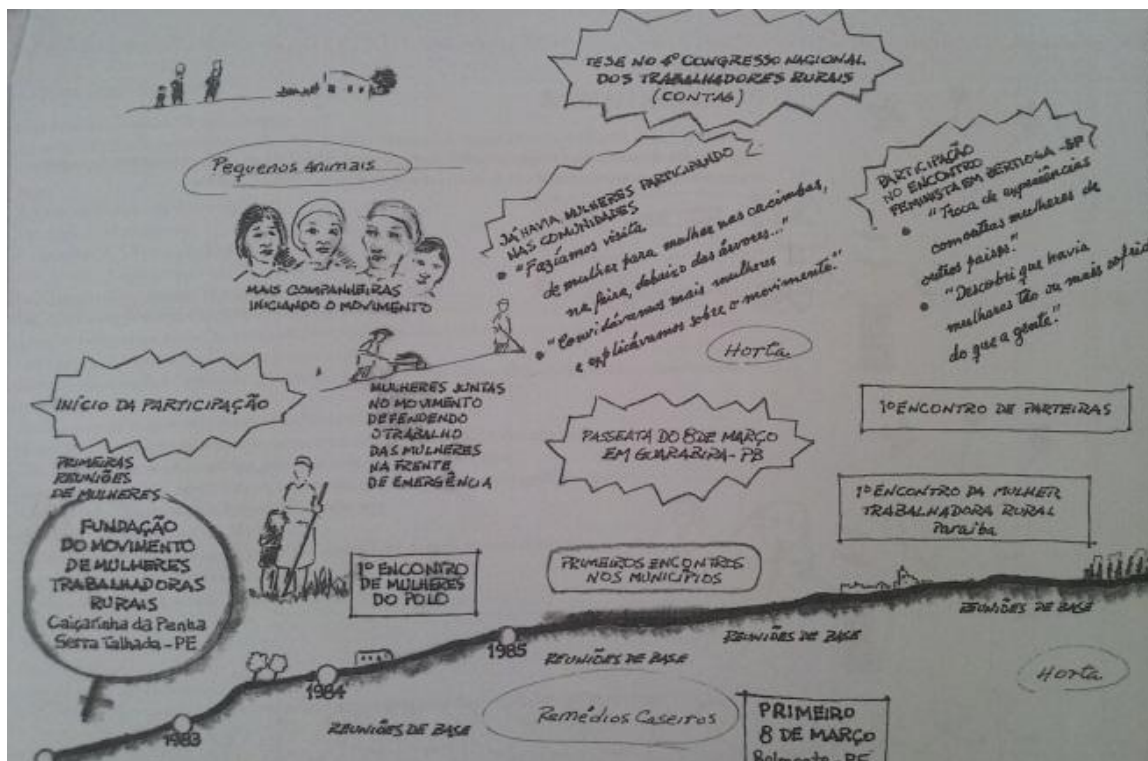 TESE NO 4º CONGRESSO NACIONAL
DOS TRABALHADORES RURAIS
(CONTAG)
Pequenos Animais
MAIS COMPANHEIRAS
INICIANDO O MOVIMENTO
JÁ HAVIA MULHERES PARTICIPANDO
NAS COMUNIDADES
• "Fazíamos visita
de mulher para mulher nas cacimbas,
na feira, debaixo das árvores..."
• "Convidávamos mais mulheres
e explicávamos sobre o movimento."
PARTICIPAÇÃO
NO ENCONTRO
FEMINISTA EM BERTIOGA - SP
• "Troca de experiências
com outras mulheres de
outros países."
• "Descobri que havia
mulheres tão ou mais
do que a gente."
Horta
INÍCIO DA PARTICIPAÇÃO
MULHERES JUNTAS
NO MOVIMENTO
DEFENDENDO
O TRABALHO
DAS MULHERES
NA FRENTE
DE EMERGÊNCIA
PASSEATA DO 8 DE MARÇO
EM GUARABIRA - PB
1º ENCONTRO DE PARTEIRAS
PRIMEIRAS
REUNIÕES
DE MULHERES
FUNDAÇÃO
DO MOVIMENTO
DE MULHERES
TRABALHADORAS
RURAIS
Caiçarinha da Penha
Serra Talhada - PE
1º ENCONTRO
DE MULHERES
DO POLO
PRIMEIROS ENCONTROS
NOS MUNICÍPIOS
1º ENCONTRO DA MULHER
TRABALHADORA RURAL
Paraíba
1983
1984
1985
REUNIÕES DE BASE
REUNIÕES DE BASE
REUNIÕES DE BASE
REUNIÕES DE BASE
Remédios Caseiros
Horta
PRIMEIRO
8 DE MARÇO
Belmonte - PE